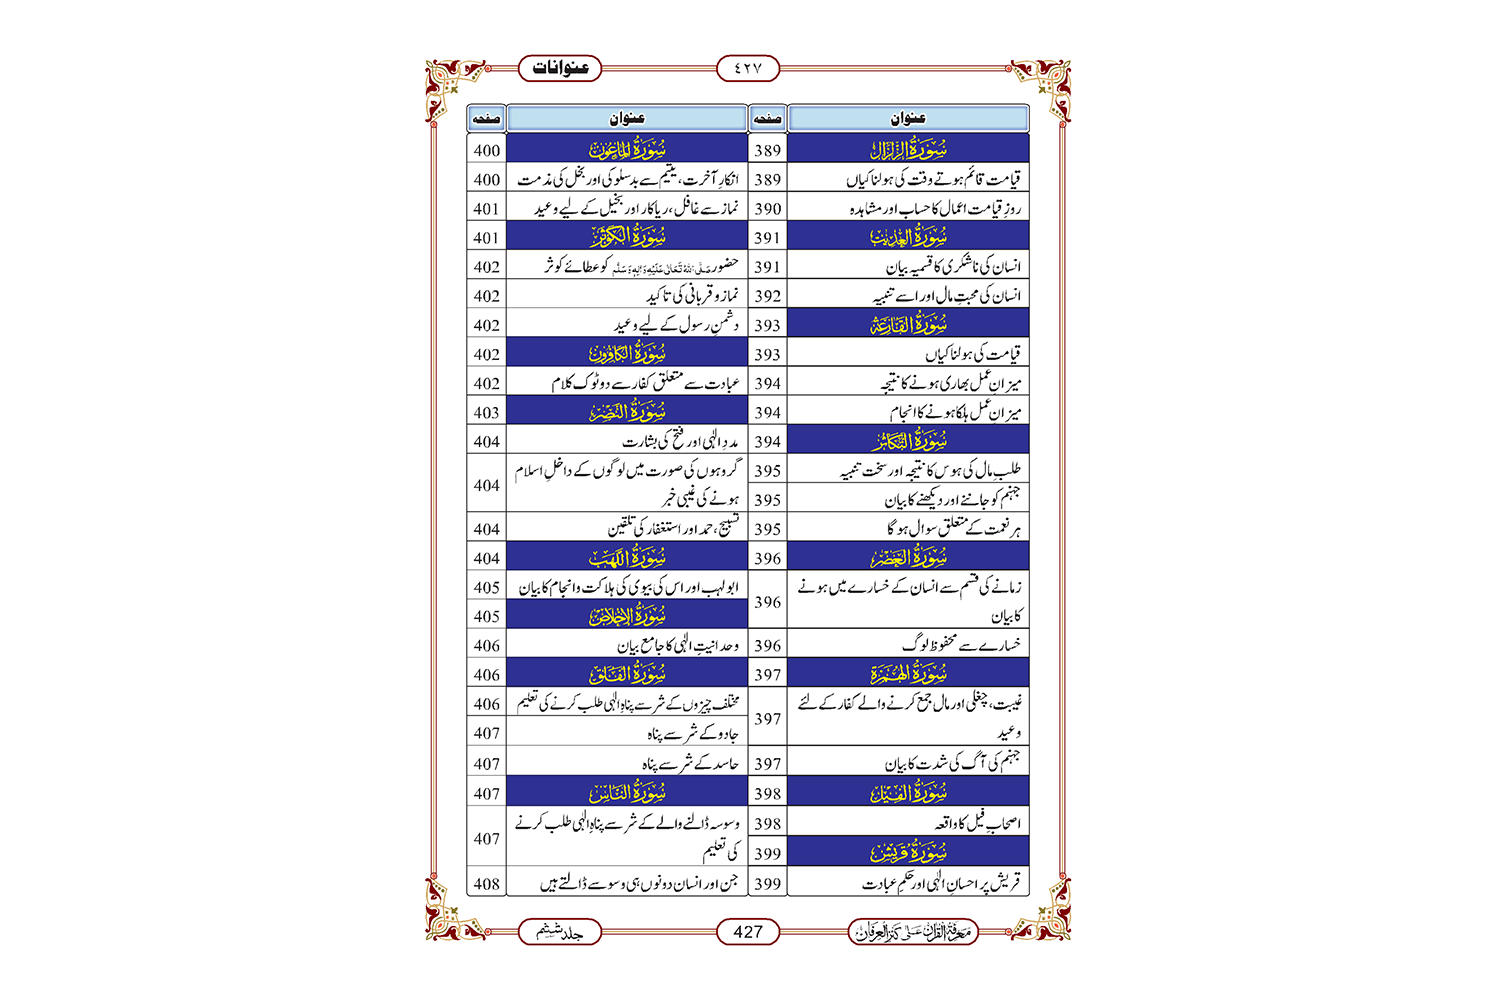 عنوانات
٤٢٧
عنوان صفحہ
سُوْرَةُ الزِّلْزَال 389
قیامت قائم ہوتے وقت کی ہولناکیاں 389
روزِ قیامت اعمال کا حساب اور مشاہدہ 390
سُوْرَةُ الْعٰدِيٰت 391
انسان کی ناشکری کا قسمیہ بیان 391
انسان کی محبتِ مال اور اسے تنبیہ 392
سُوْرَةُ الْقَارِعَة 393
قیامت کی ہولناکیاں 393
میزانِ عمل بھاری ہونے کا نتیجہ 394
میزانِ عمل ہلکا ہونے کا انجام 394
سُوْرَةُ التَّكَاثُر 394
طلبِ مال کی ہوس کا نتیجہ اور سخت تنبیہ 395
جہنم کو جاننے اور دیکھنے کا بیان 395
ہر نعمت کے متعلق سوال ہو گا 395
سُوْرَةُ الْعَصْر 396
زمانے کی قسم سے انسان کے خسارے میں ہونے
کا بیان 396
خسارے سے محفوظ لوگ 396
سُوْرَةُ الْهُمَزَة 397
غیبت، چغلی اور مال جمع کرنے والے کفار کے لئے
وعید 397
جہنم کی آگ کی شدت کا بیان 397
سُوْرَةُ الْفِيْل 398
اصحابِ فیل کا واقعہ 398
سُوْرَةُ قُرَيْش 399
قریش پر احسانِ الٰہی اور حکمِ عبادت 399
عنوان صفحہ
سُوْرَةُ الْمَاعُوْن 400
انکارِ آخرت، یتیم سے بدسلوکی اور بخل کی مذمت 400
نماز سے غافل، ریاکار اور بخیل کے لیے وعید 401
سُوْرَةُ الْكَوْثَر 401
حضور صَلَّی اللّٰهُ تَعَالٰی عَلَیْهِ وَاٰلِهٖ وَسَلَّم کو عطائے کوثر 402
نماز و قربانی کی تاکید 402
دشمنِ رسول کے لیے وعید 402
سُوْرَةُ الْكَافِرُوْن 402
عبادت سے متعلق کفار سے دوٹوک کلام 402
سُوْرَةُ النَّصْر 403
مددِ الٰہی اور فتح کی بشارت 404
گروہوں کی صورت میں لوگوں کے داخلِ اسلام
ہونے کی غیبی خبر 404
تسبیح، حمد اور استغفار کی تلقین 404
سُوْرَةُ اللَّهَب 404
ابولہب اور اس کی بیوی کی ہلاکت و انجام کا بیان 405
سُوْرَةُ الْاِخْلَاص 405
وحدانیتِ الٰہی کا جامع بیان 406
سُوْرَةُ الْفَلَق 406
مختلف چیزوں کے شر سے پناہِ الٰہی طلب کرنے کی تعلیم 406
جادو کے شر سے پناہ 407
حاسد کے شر سے پناہ 407
سُوْرَةُ النَّاس 407
وسوسہ ڈالنے والے کے شر سے پناہِ الٰہی طلب کرنے
کی تعلیم 407
جن اور انسان دونوں ہی وسوسے ڈالتے ہیں 408
معرفۃ القرآن علیٰ کنز العرفان
427
جلد ششم